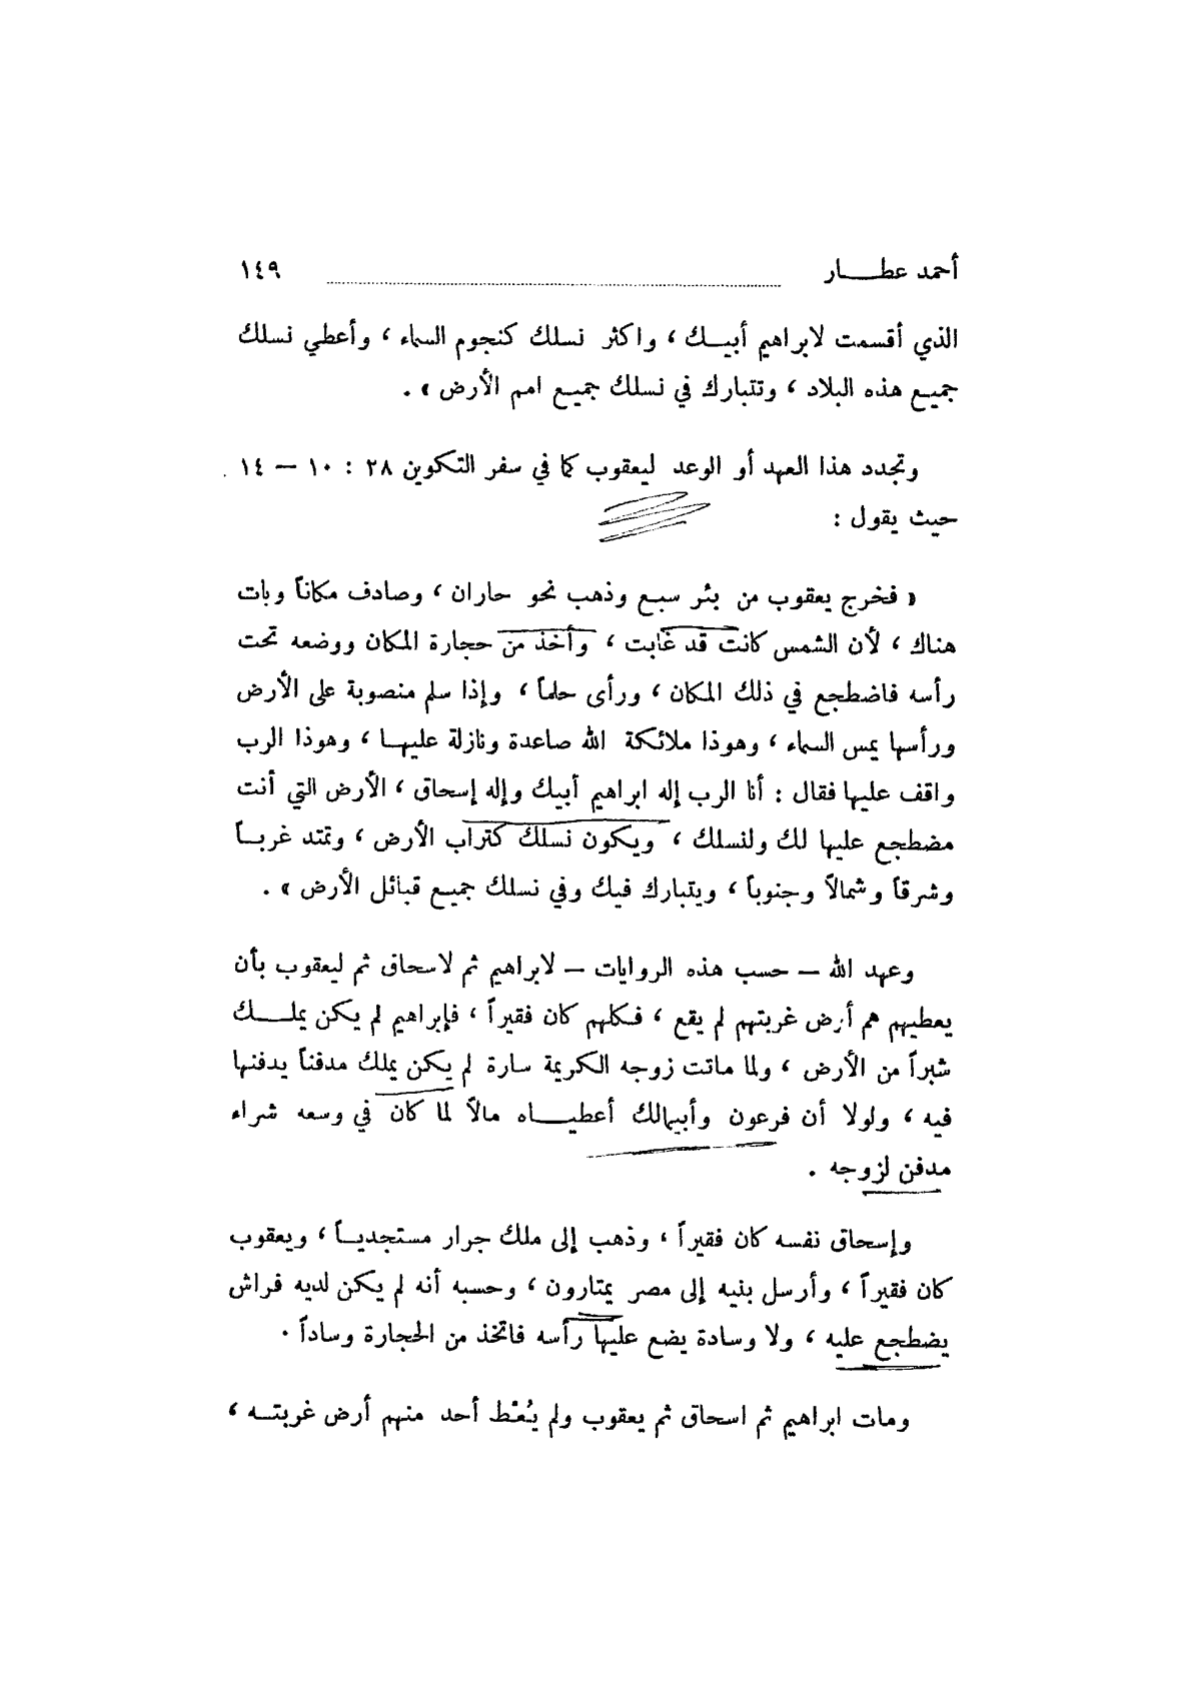 أحمد عطـــار ١٤٩
الذي أقسمت لابراهيم أبيــك ، واكثر نسلك كنجوم السماء ، وأعطي نسلك
جميع هذه البلاد ، وتتبارك في نسلك جميع امم الأرض » .
وتجدد هذا العهد أو الوعد ليعقوب كما في سفر التكوين ٢٨ : ١٠ – ١٤
حيث يقول :
« فخرج يعقوب من بئر سبع وذهب نحو حاران ، وصادف مكاناً وبات
هناك ، لأن الشمس كانت قد غابت ، وأخذ من حجارة المكان ووضعه تحت
رأسه فاضطجع في ذلك المكان ، ورأى حلماً ، وإذا سلم منصوبة على الأرض
ورأسها يمس السماء ، وهوذا ملائكة الله صاعدة ونازلة عليهـا ، وهوذا الرب
واقف عليها فقال : أنا الرب إله ابراهيم أبيك وإله إسحاق ، الأرض التي أنت
مضطجع عليها لك ولنسلك ، ويكون نسلك كتراب الأرض ، وتمتد غربــاً
وشرقاً وشمالاً وجنوباً ، ويتبارك فيك وفي نسلك جميع قبائل الأرض » .
وعهد الله – حسب هذه الروايات – لابراهيم ثم لاسحاق ثم ليعقوب بأن
يعطيهم هم أرض غربتهم لم يقع ، فكلهم كان فقيراً ، فإبراهيم لم يكن يملـــك
شبراً من الأرض ، ولما ماتت زوجه الكريمة سارة لم يكن يملك مدفناً يدفنها
فيه ، ولولا أن فرعون وأبيمالك أعطيـــاه مالاً لما كان في وسعه شراء
مدفن لزوجه .
وإسحاق نفسه كان فقيراً ، وذهب إلى ملك جرار مستجديـاً ، ويعقوب
كان فقيراً ، وأرسل بنيه إلى مصر يمتارون ، وحسبه أنه لم يكن لديه فراش
يضطجع عليه ، ولا وسادة يضع عليها رأسه فاتخذ من الحجارة وساداً .
ومات ابراهيم ثم اسحاق ثم يعقوب ولم يُعْط أحد منهم أرض غربتــه ،